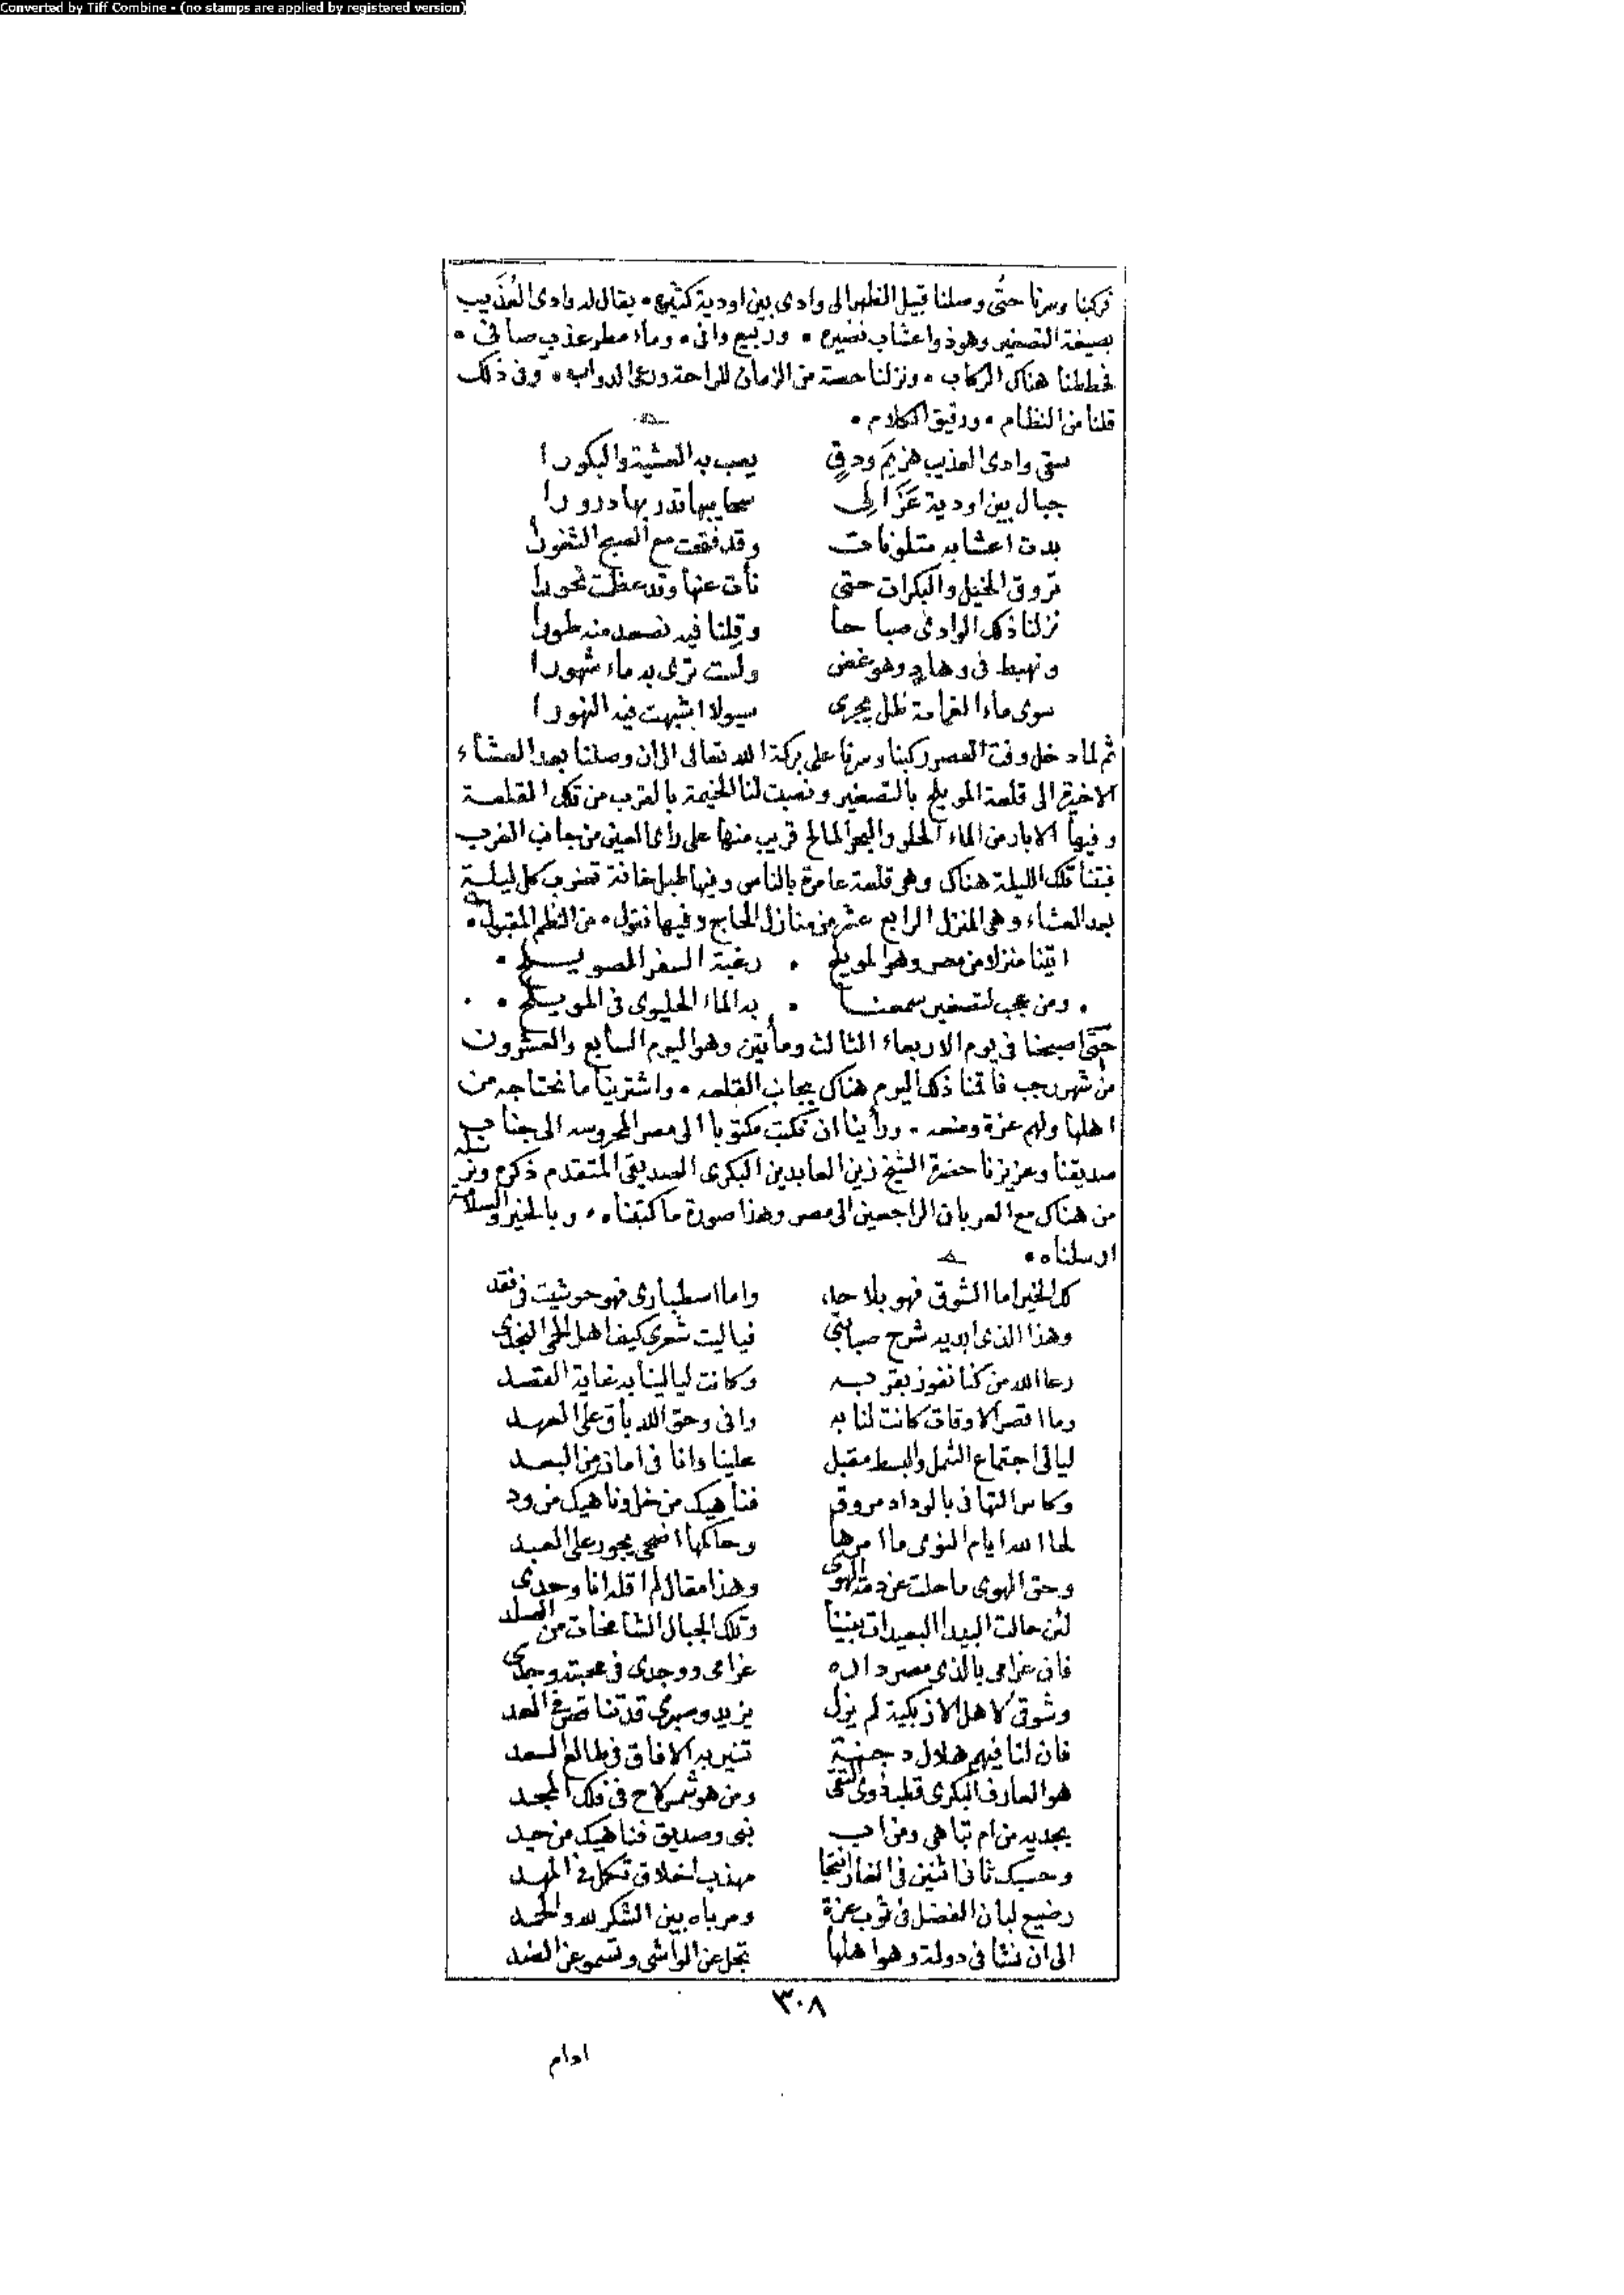 Converted by Tiff Combine - (no stamps are applied by registered version)
فركبنا وسرنا حتّى وصلنا قبيل الظهر الى وادى بين اودية كثيره • يقال له وادى العُذَيب
بصيغة التصغير وهو ذو اعشاب نضيره • وربيع وافى • وماء مطر عذب صافى •
فحططنا هناك الركاب • ونزلنا حصة من الزمان للراحة ورعى الدواب • وفى ذلك
قلنا من النظام • ورقيق الكلام •
سقى وادى العذيب هزيم ودقٍ يصب به العشية والبكورا
جبال بين اودية عَزَالِى سحايبها تدر بها درورا
بدت اعشابه متلونات وقد فتقت مع الصبح الثغورا
تروق الخيل والبكرات حتى نأت عنها وقد عظت نحورا
نزلنا ذلك الوادى صباحا وقلنا فيه نصعد منه طورا
ونهبط فى وهادٍ وهو غض ولست ترى به ماء شهورا
سوى ماء الغمامة ظل يجرى سيولا اشبهت فيه النهورا
ثم لما دخل وقت العصر ركبنا وسرنا على بركة الله تعالى الى ان وصلنا بعد العشاء
الاخيرة الى قلعة المويلح بالتصغير ونصبت لنا الخيمة بالقرب من تلك القلعة
وفيها الابار من الماء الحلو والبحر المالح قريب منها على راى العين من جانب الغرب
فبتنا تلك الليلة هناك وهى قلعة عامرة بالناس وفيها طبل خانة تضرب كل ليلة
بعد العشاء وهى المنزل الرابع عشر من منازل الحاج وفيها نقول • من النظم المقبول •
اتينا منزلا من مصر وهو المويلح • رغبة السفر المصويلح •
• ومن عجب لتصغير سمعنا • به الماء الحليوى فى المويلح • •
حتّى اصبحنا فى يوم الاربعاء الثالث ومأتين وهو اليوم السابع والعشرون
من شهر رجب فاقمنا ذلك اليوم هناك بجانب القلعه • واشترينا ما نحتاجه من
اهلها ولهم عزة ومنعه • ورأينا ان نكتب مكتوبا الى مصر المحروسه الى جناب
صديقنا وعزيزنا حضرة الشيخ زين العابدين البكرى الصديقى المتقدم ذكره ونرسله
من هناك مع العربان الراجعين الى مصر وهذا صورة ما كتبناه • وبالخير والسلامة
ارسلناه •
كل الخير اما الشوق فهو بلا حد واما اصطبارى فهو حوشيت فى فقد
وهذا الذى ابديه شرح صبابتى فياليت شعرى كيف اهل الحمى النجدى
رعا الله من كنا نفوز بقربه وكانت ليالينا به غاية القصد
وما اقصر الاوقات كانت لنا به وانى وحق الله باق على العهد
ليالى اجتماع الشمل والبسط مقبل علينا وانا فى امان من البعد
وكاس التهانى بالوداد مروق فناهيك من خل وناهيك من ود
لحا الله ايام النوى ما امرها وحاكمها اضحى يجور على العبد
وحق الهوى ما حلت عن ذمة الهوى وهذا مقال لم اقله انا وحدى
لئن حالت البيدا البعيدات بيننا وتلك الجبال الشامخات من الصلد
فان غرامى بالذى مصر داره غرامى ووجدى فى محبته وجدى
وشوقى لاهل الازبكية لم يزل يزيد وصبرى قد تناقص فى العد
فان لنا فيهم هلال دجنة تنير به الافاق فى طالع السعد
هو العارف البكرى قبلة ذوى التقى ومن هو شمس لاح فى فلك المجد
بجديه من ام تباهى ومن اب نبى وصديق فناهيك من جد
وحسبك ثانى اثنين فى الغار انتجا مهذب اخلاق تكمل فى المهد
رضيع لبان الفضل فى ثوب عزة ومرباه بين الشكر لله والحمد
الى ان نشا فى دولة وهو اهلها تجل عن الواشى وتسمو عن الضد
٣٠٨
ادام